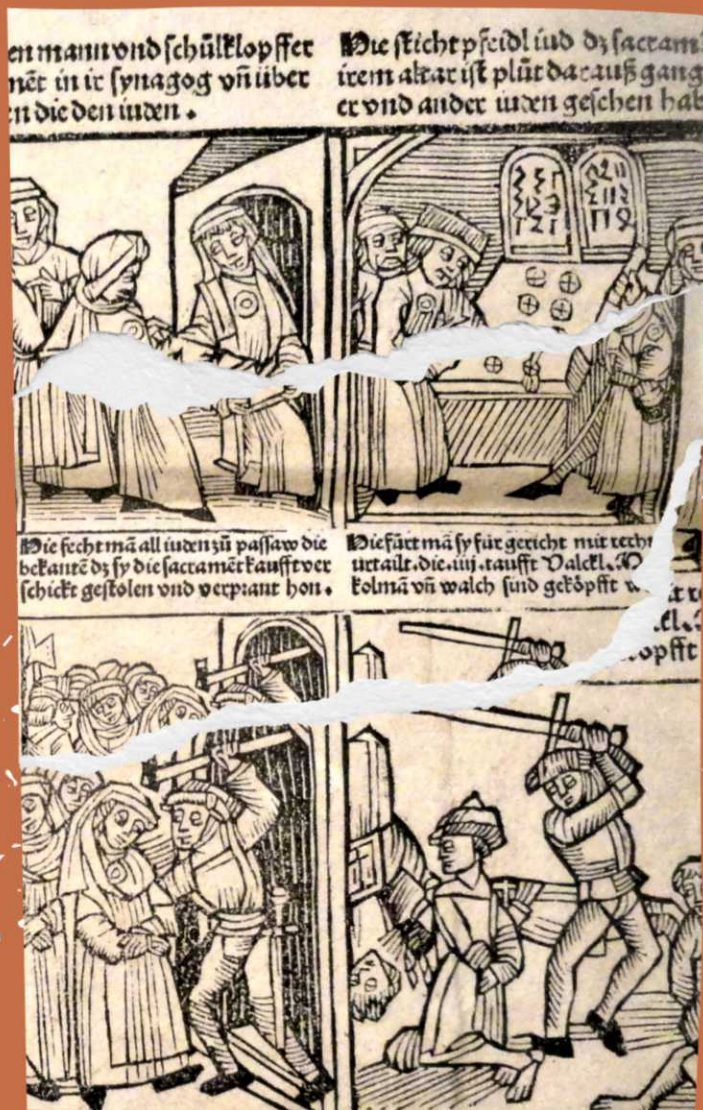 en mann vnd schůlklopffer
mēt in ir synagog vn̄ über
n die den iuden .
Hie sticht pfeidl iud dz sacram
irem altar ist plůt darauß gang
er vnd ander iuden gesehen hab
Hie fecht mā all iuden zů passaw die
bekantē dz sy die sacramēt kaufft ver
schickt gestolen vnd verprant hon .
Hie fürt mā sy für gericht mit recht
urtailt . die . iiij . taufft Valckl .
kolmā vn̄ walch sind geköpfft
opfft